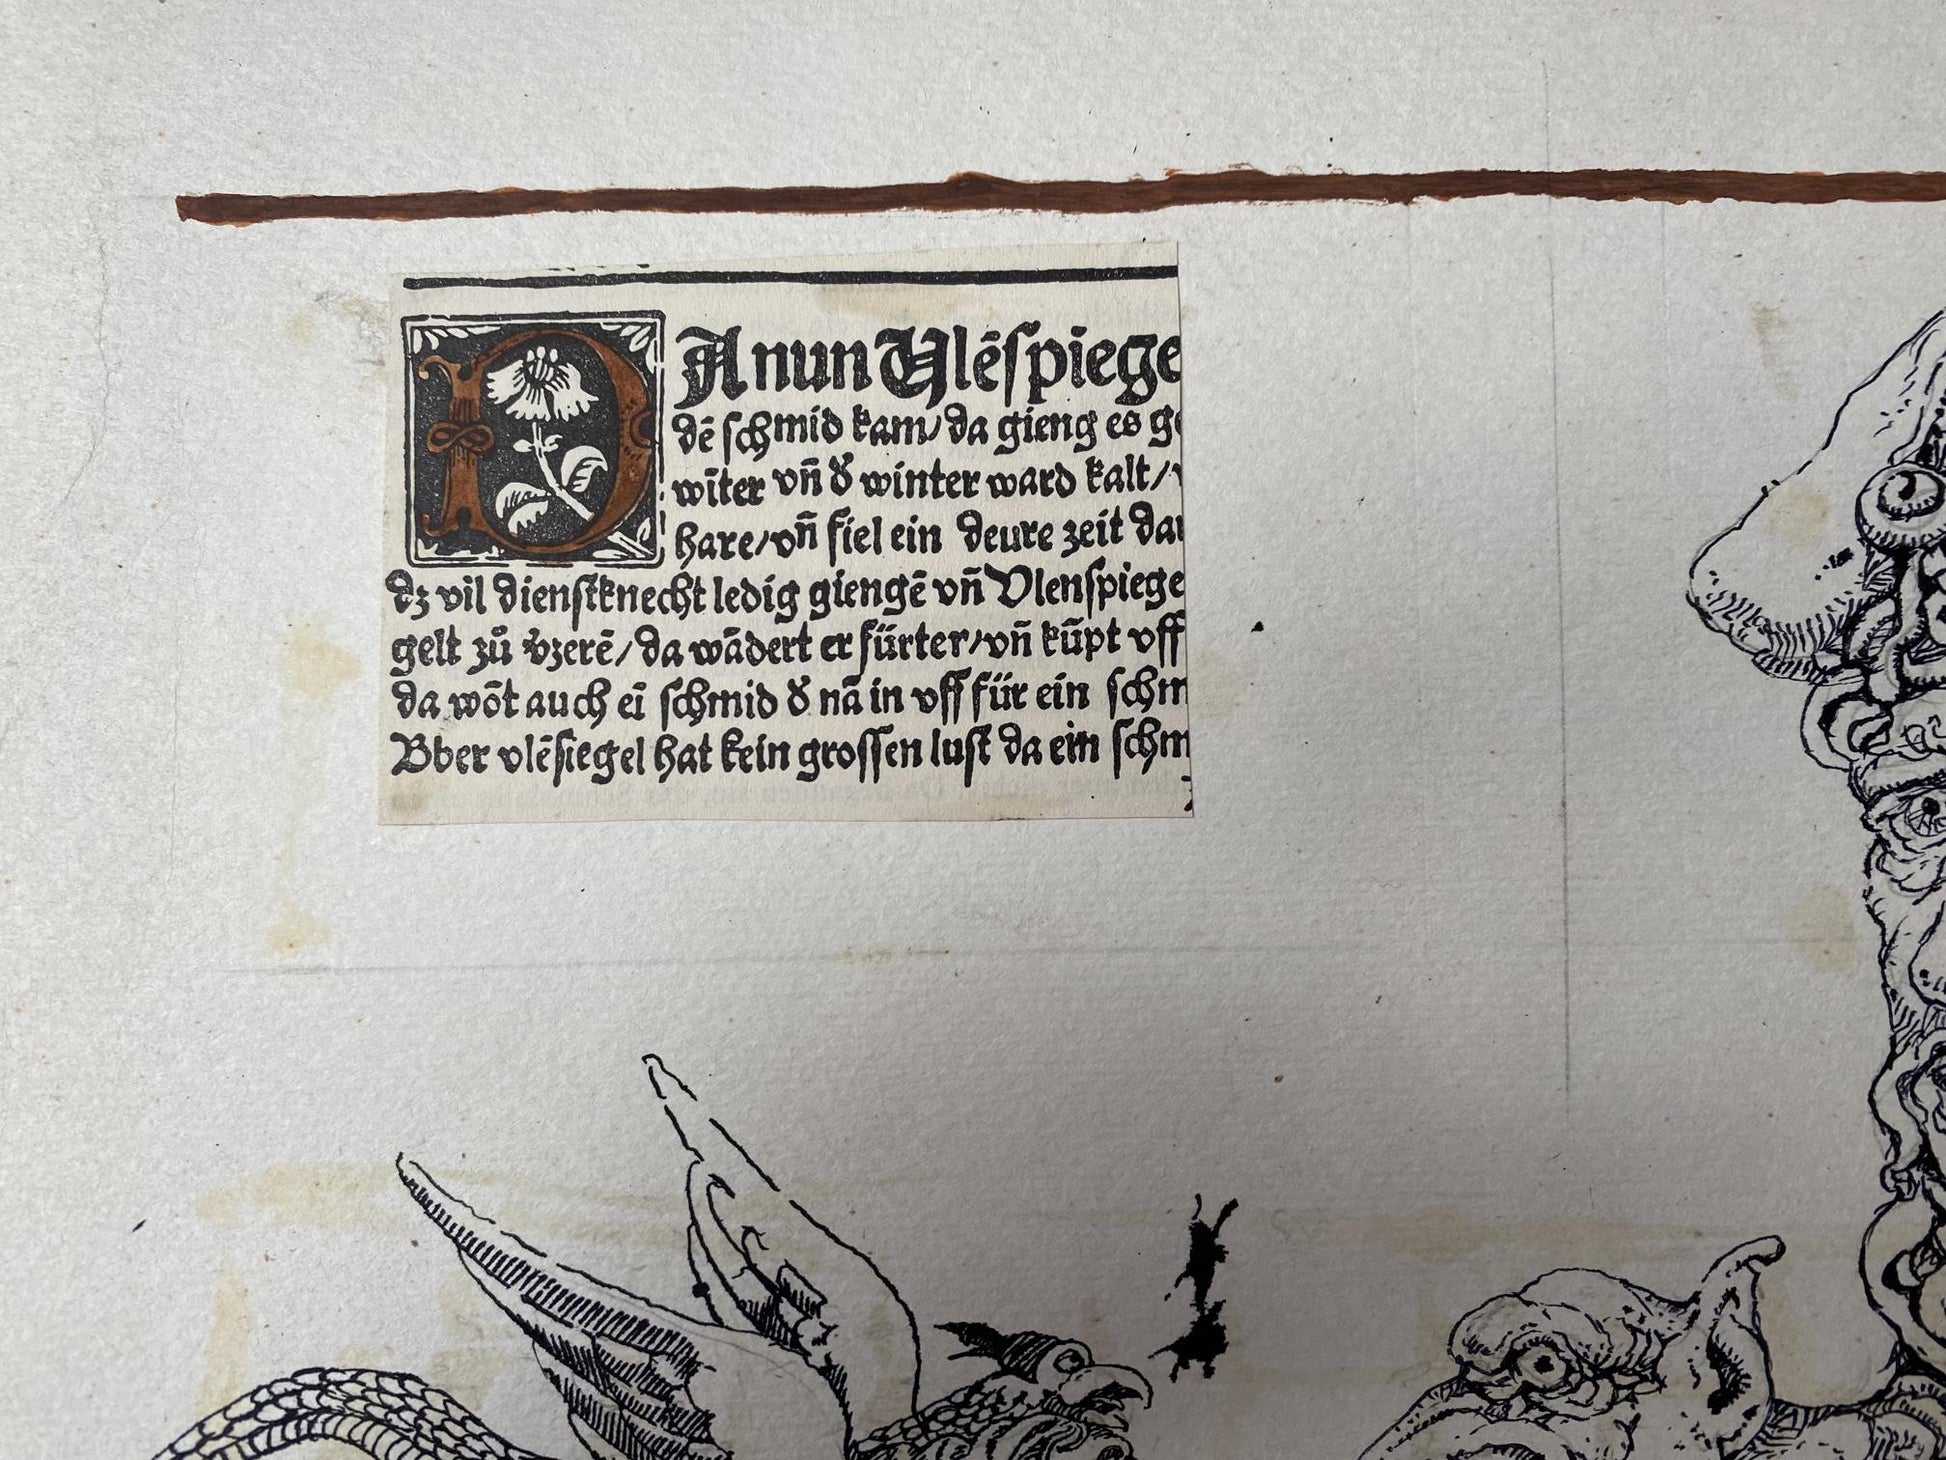 DA nun Ulēspiege
dē schmid kam/da gieng es
wīter vñ ď winter ward kalt/
hare/vñ fiel ein deure zeit
dz vil dienstknecht ledig giengē vñ Ulenspiege
gelt zů v̓zerē/da wādert er fürter/vñ kūpt vff
da wōt auch eī schmid ď nā in vff für ein schm
Aber vlēsiegel hat kein grossen lust da ein schm